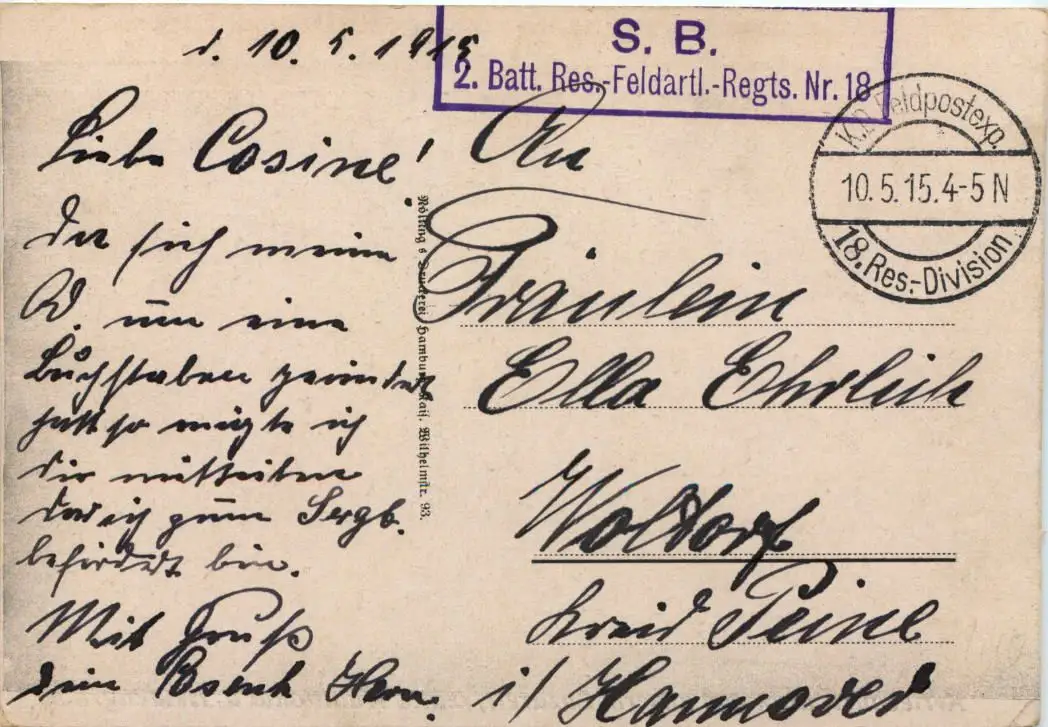 d. 10. 5. 1915
S. B.
2. Batt. Res.-Feldartl.-Regts. Nr. 18
K.D. Feldpostexp.
10.5.15.4-5 N
18. Res.-Division
Liebe Cosine!
Da sich meine
um eine
Buchstaben geändert
hatt so mögte ich
dir mitteilen
das ich zum Sergt.
befördert bin.
Mit Gruß
dein Herm.
An
Fräulein
Ella Ehrlich
Woltorf
Kreis Peine
i/ Hannover
Druckerei Hamburg Kais. Wilhelmstr. 93.